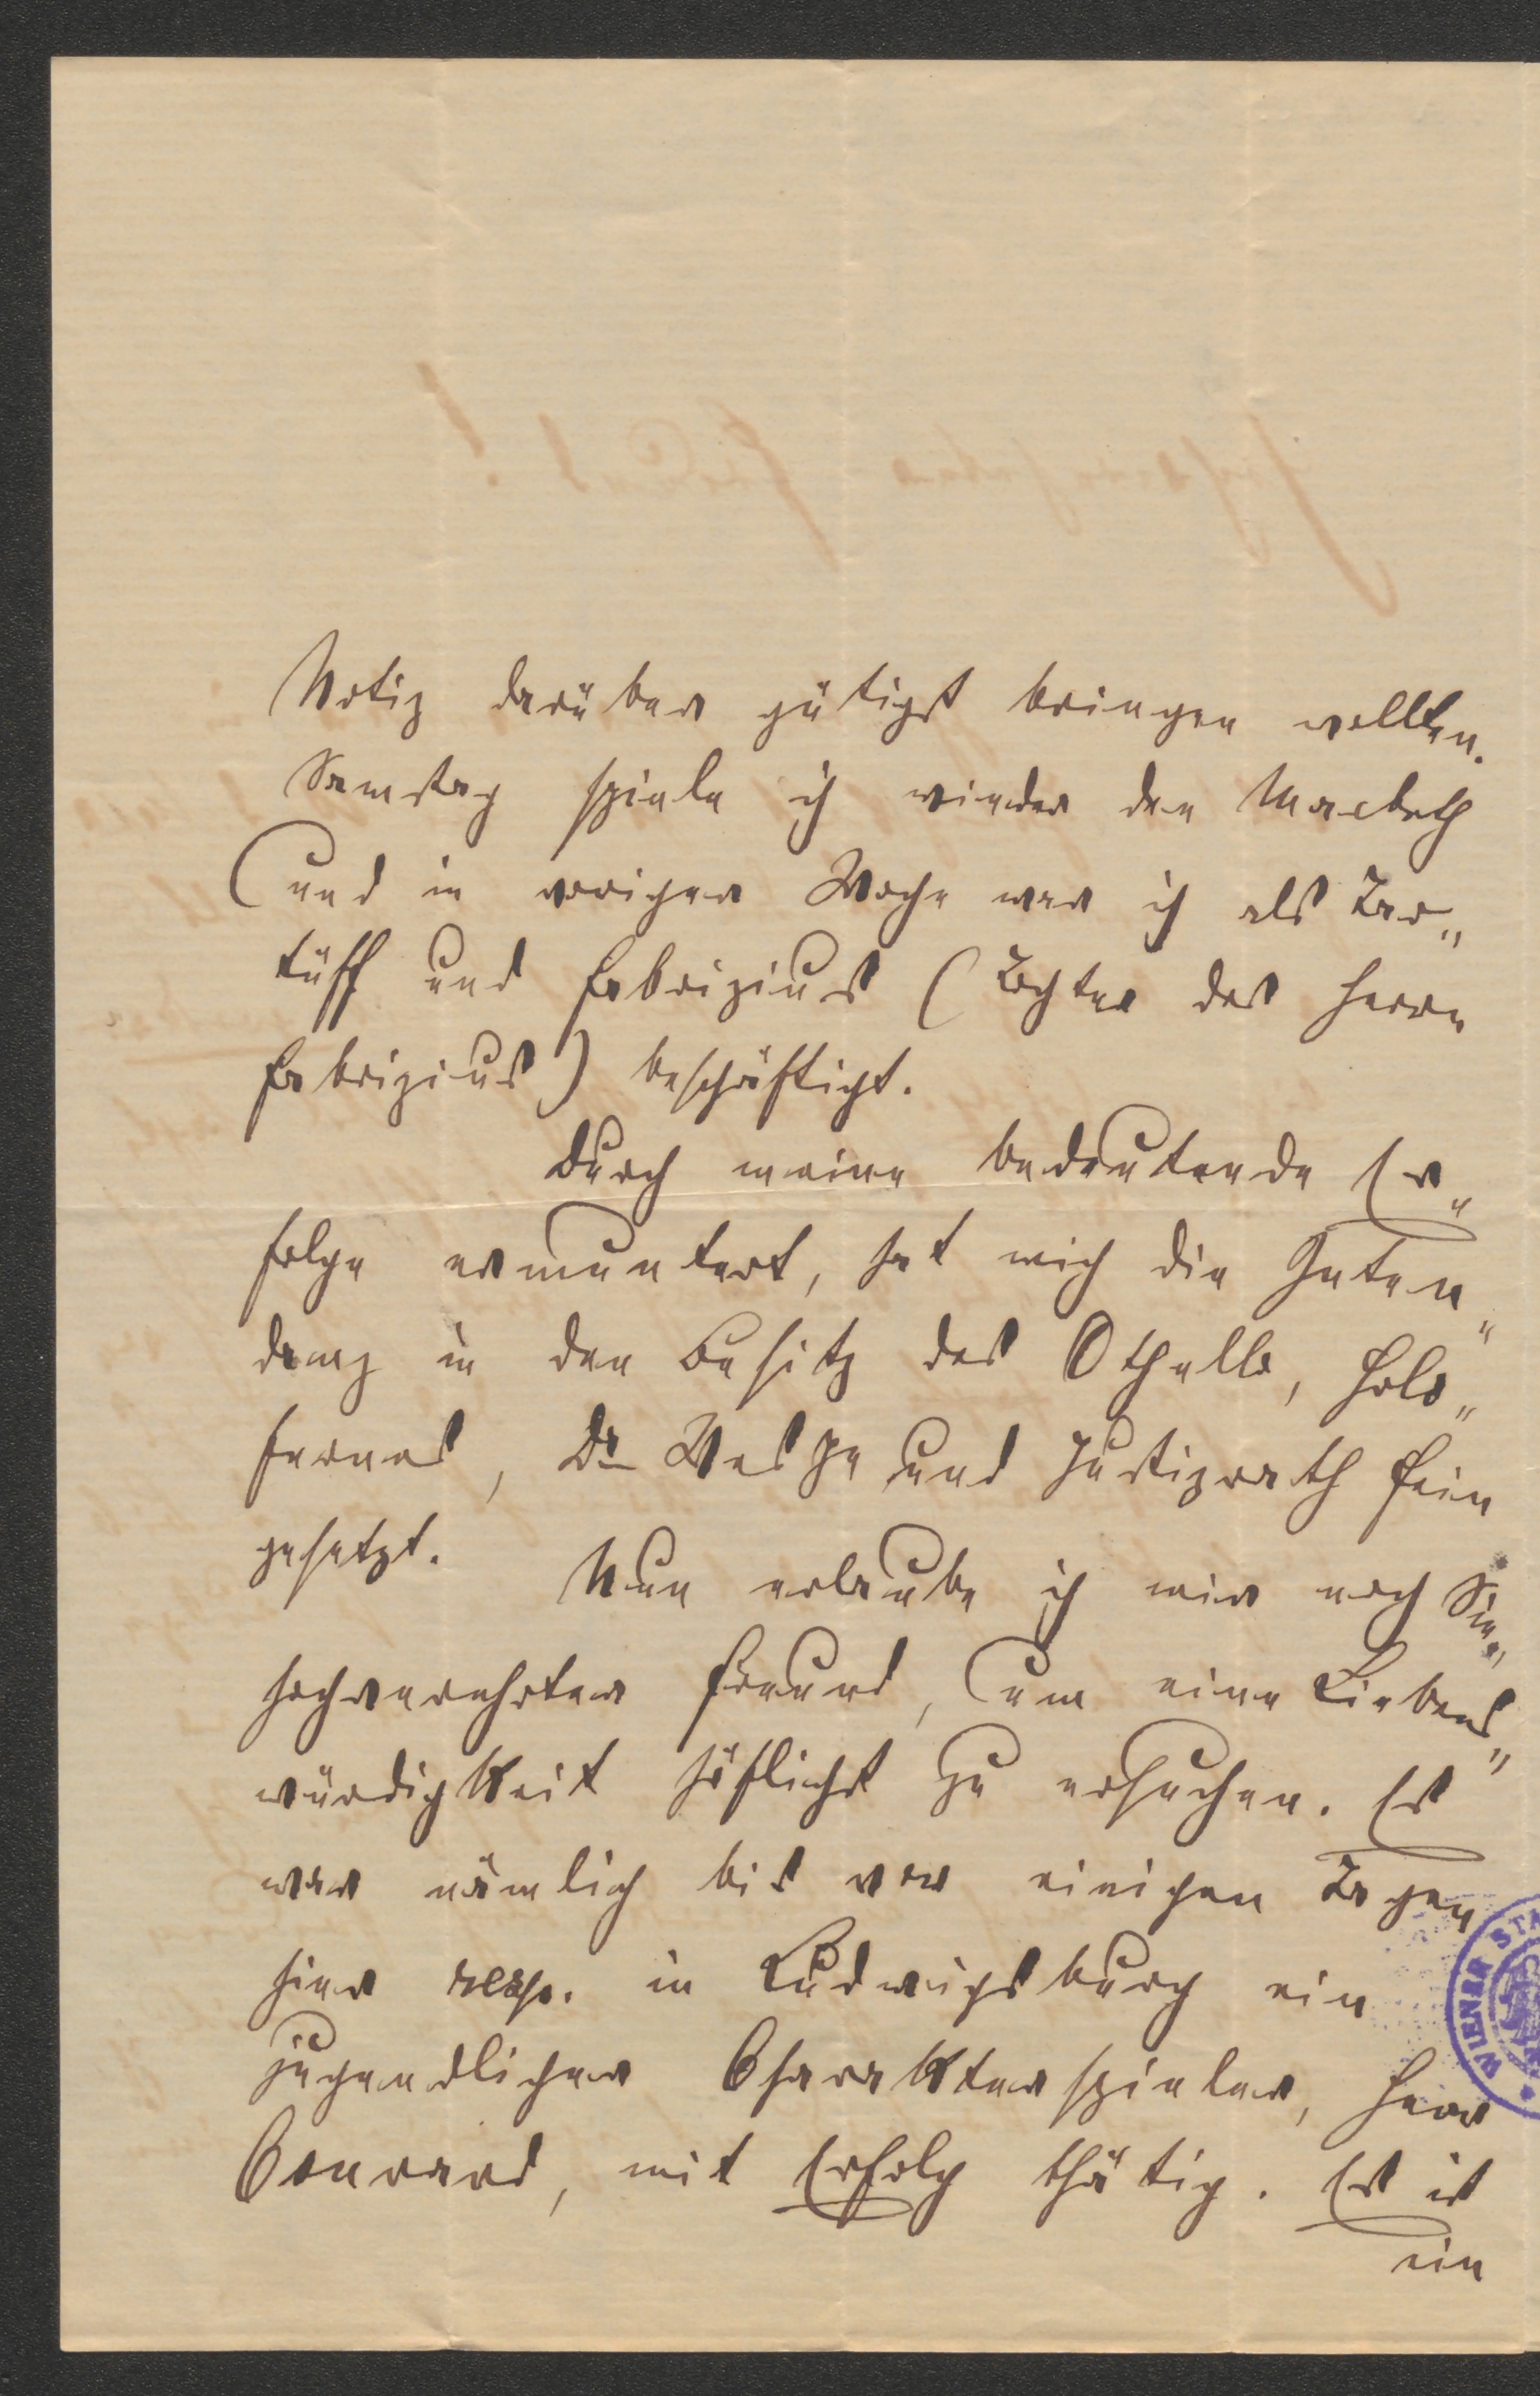 Notiz darüber gütigst bringen wollten.
Samstag spiele ich wieder den Macbeth
und in voriger Woche war ich als Tar„
tüff und Fabrizius (Tochter des Herrn
Fabrizius) beschäftigt.
Durch meine bedeutende Er„
folge ermuntert, hat mich die Inten„
danz in den Besitz des Othello, Holo„
fernes, Dr Wespe und Justizrath Fein
gesetzt. Nun erlaube ich mir noch Sie,
hochverehrter Freund, um eine Liebens„
würdigkeit höflichst zu ersuchen. Es
war nämlich bis vor einigen Tagen
hier resp. in Ludwigsburg ein
jugendlicher Charakterspieler, Herr
Conrard, mit Erfolg thätig. Es ist
ein
WIENER STA